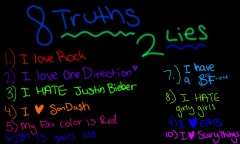 8 Truths
2 Lies
1.) I love Rock
2) I love One Direction
3) I HATE Justin Bieber
4) I ♥ SonDash
5) My fav color is Red
6)
7.) I have a BF
8) I HATE girly girls
9) I ♥ CATS
10) I ♥ Scary Things